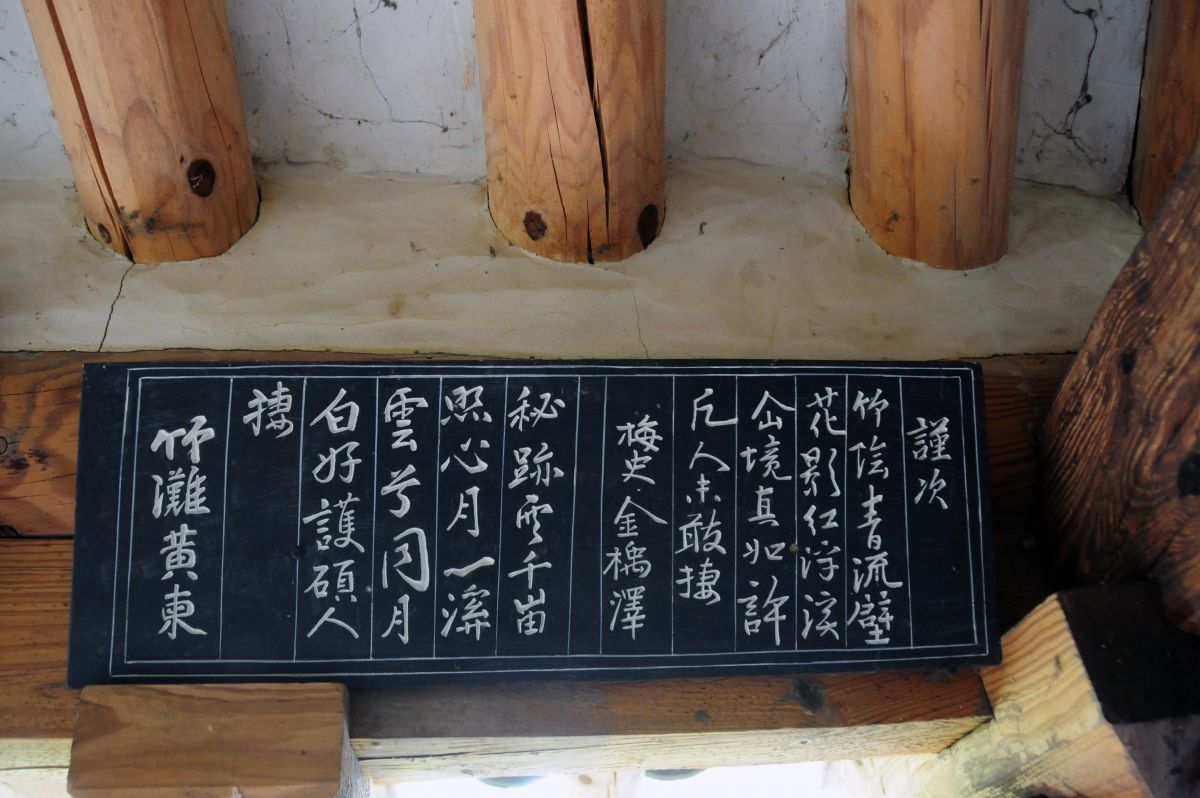 謹次
竹陰青流壁
花影红浮溪
仚境真如許
凡人未敢捿
梅史 金楀澤
秘跡雲千峀
照心月一溪
雲兮同月
白好護碩人
捿
竹灘黄東